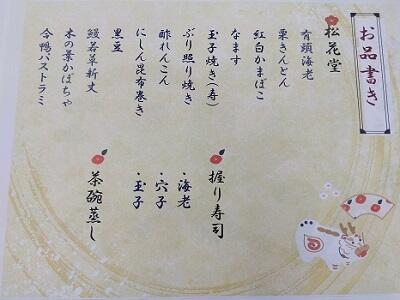 お品書き
松花堂
有頭海老
栗きんとん
紅白かまぼこ
なます
玉子焼き(寿)
ぶり照り焼き
酢れんこん
にしん昆布巻き
黒豆
鰻若草新丈
木の葉かぼちゃ
合鴨パストラミ
握り寿司
・海老
・穴子
・玉子
茶碗蒸し